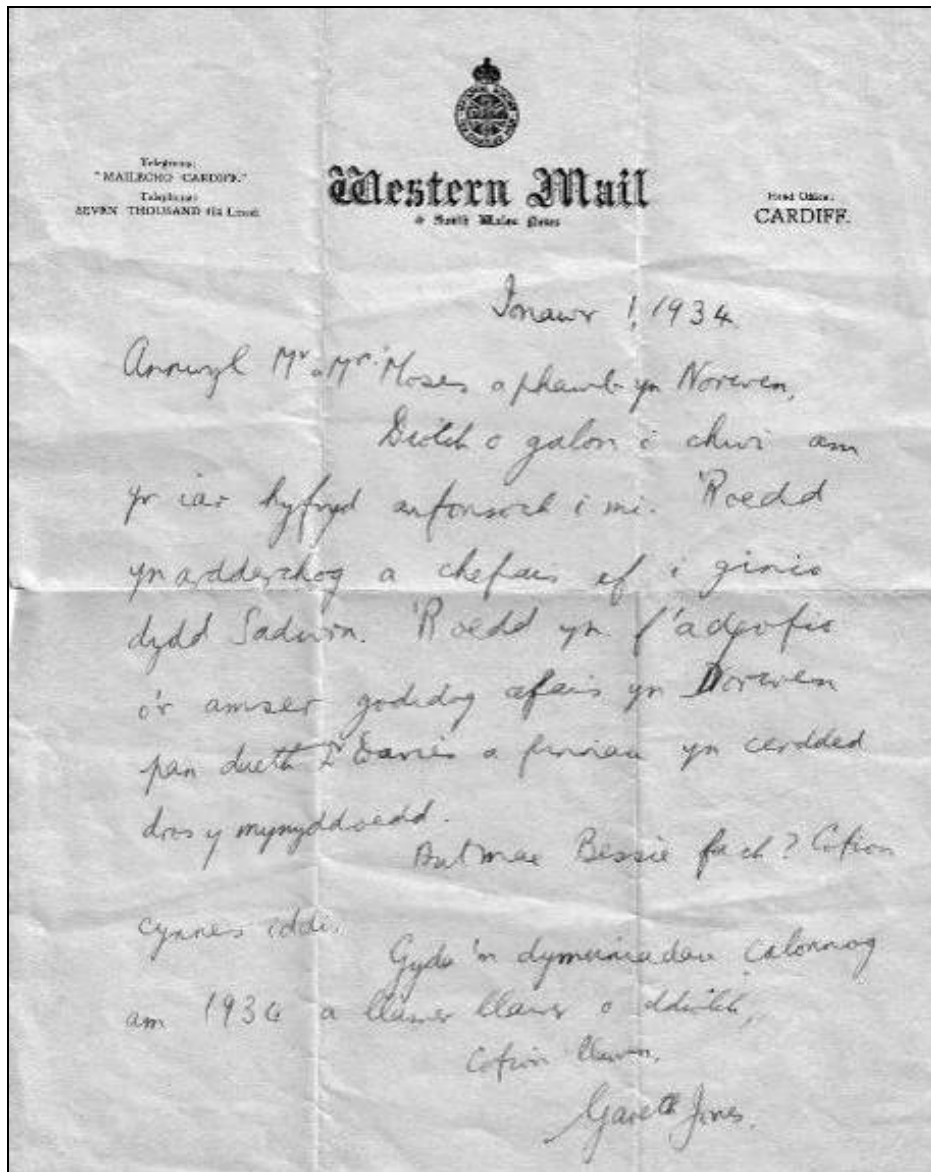 Telegrams:
"MAILECHO CARDIFF."
Telephone:
SEVEN THOUSAND
Western Mail
& South Wales News
Head Office:
CARDIFF.
Ionawr 1, 1934
Annwyl Mr. a Mrs. Moses a phawb yn Norwen,
Diolch o galon i chwi am
yr iar hyfryd anfonsoch i mi. 'Roedd
yn ardderchog a chefais ef i ginio
dydd Sadwrn. 'Roedd yn f'adgofio
o'r amser godidog cefais yn Norwen
pan daeth Davies a finnau yn cerdded
dros y mynyddoedd.
Sut mae Bessie fach? Cofion
cynnes iddi.
Gyda 'n dymuniadau calonnog
am 1934 a llawer llawer o ddiolch,
Cofion
Gareth Jones.